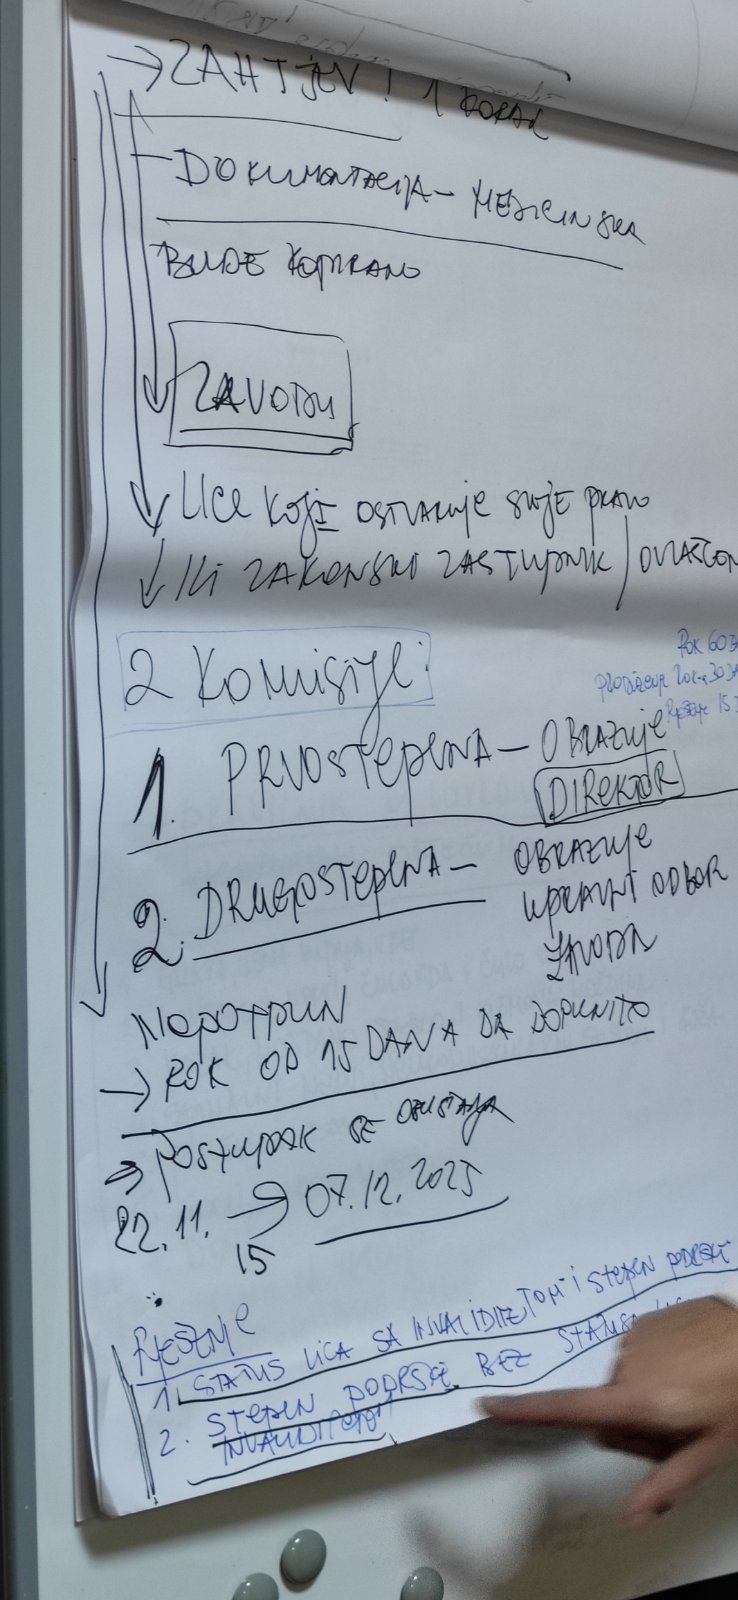 → ZAHTJEV! 1 KORAK
- DOKUMENTACIJA - MEDICINSKA
BUDE KOPIRANO
ZAVODU
LICE KOJI OSTVARUJE SVOJE PRAVO
ILI ZAKONSKI ZASTUPNIK / OVLAŠĆEN
2 KOMISIJE:
ROK 60 DA
PRODUŽENJE ROKA 30 DA
RJEŠENJE 15 D
1. PRVOSTEPENA - OBRAZUJE
DIREKTOR
2. DRUGOSTEPENA - OBRAZUJE
UPRAVNI ODBOR
ZAVODA
NEPOTPUN
→ ROK OD 15 DANA DA DOPUNITO
→ POSTUPAK SE OBUSTAVJA
22.11. → 07.12.2025
15
RJEŠENJE
1. STATUS LICA SA INVALIDITETOM I STEPEN PODRŠKE
2. STEPEN PODRŠKE BEZ STATUSA
INVALIDITETOM